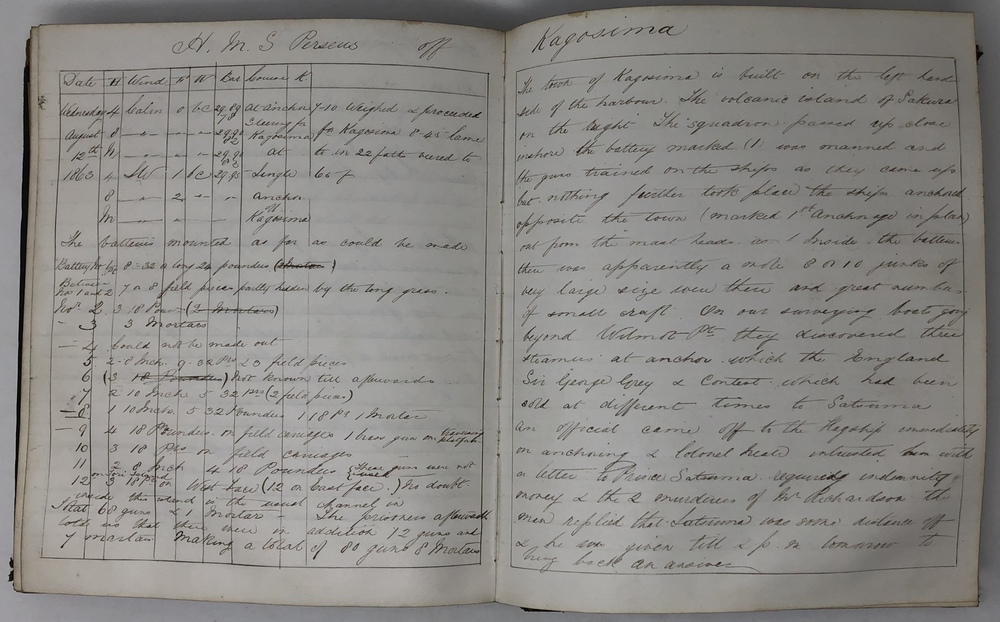 H. M. S Perseus off
Date H Wind F W Bar Course &
Wednesday 4 Calm 0 bc 29.89 At anchor 7-10 Weighed & proceeded
August 8 - " - - " 29.90 Kagosima for Kagosima 8-45 Came
12th N - " - - " 29.90 at to in 22 fath veered to
1863 4 SW 1 bc 29.95 Single 60 f
8 - " - 2 - " - anchor
M - " - off
Kagosima
The batteries mounted as far as could be made
Battery No 8-32 or long 24 pounders
Between
No 1 and 2 7 or 8 field pieces partly hidden by the long grass.
No 2 3 18 Pounders (2 Mortars)
- 3 3 Mortars
- 4 Could not be made out
5 2-8 Inch 9-32 Prs 23 field pieces
6 (3 18 Pounders) Not known till afterwards
7 2 10 Inch 5 32 prs (2 field pieces)
- 8 1 10 Inch 5 32 Pounders 1 18 Pr 1 Mortar
- 9 4 18 Pounders on field carriages 1 brass gun on traversing platform
10 3 18 Prs on field carriages -
11 2 8 Inch 4 18 Pounders These guns were not
12 3 18 Pr on West face (12 on East face.) No doubt.
inside this island is the usual channel in
Total 68 guns & 1 Mortar - The prisoners afterwards
told us that there were in addition 12 guns and
7 mortars Making a total of 80 guns 8 Mortars
Kagosima
The town of Kagosima is built on the left hand
side of the harbour. The volcanic island of Sakura
on the right The squadron passed up close
inshore the battery marked (1) was manned and
the guns trained on the ships as they came up
but nothing further took place the ships anchored
opposite the town (marked 1st Anchorage in plan)
out from the mast heads Inside the batteries
there was apparently a mole 8 or 10 junks of
very large size were there and great number
of small craft. On our surveying boats going
beyond Wilmot Pt they discovered three
steamers at anchor which the England
Sir George Grey & Contest which had been
sold at different times to Satsuma
An official came off to the flagship immediately
on anchoring & Colonel Neale intrusted him with
a letter to Prince Satsuma requiring indemnity
money & the 2 murderers of Mr Richardson the
man replied that Satsuma was some distance off
& he was given till 2 p.m tomorrow to
bring back an answer